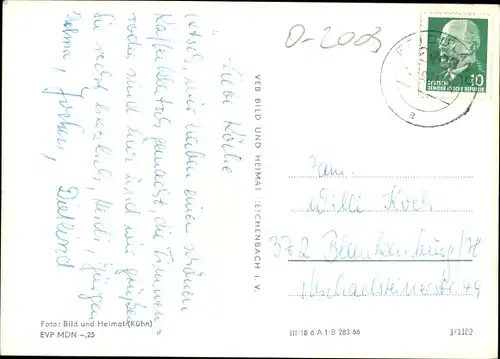 D-2009
DEUTSCHE
DEMOKRATISCHE REPUBLIK
10
Liebe Köche
haben einen schönen
Kaffeklatsch gemacht, die
sind hier und wir grüßen
Sie recht herzlich, Heidi, Jürgen
Jochen, Dietlind
VEB BILD UND HEIMAT REICHENBACH I. V.
Fam.
Willi Koch
372 Blankenburg/H
49
Foto: Bild und Heimat (Kühn)
EVP MDN –,25
III/18/6 A 1/B 283/66
3/1102